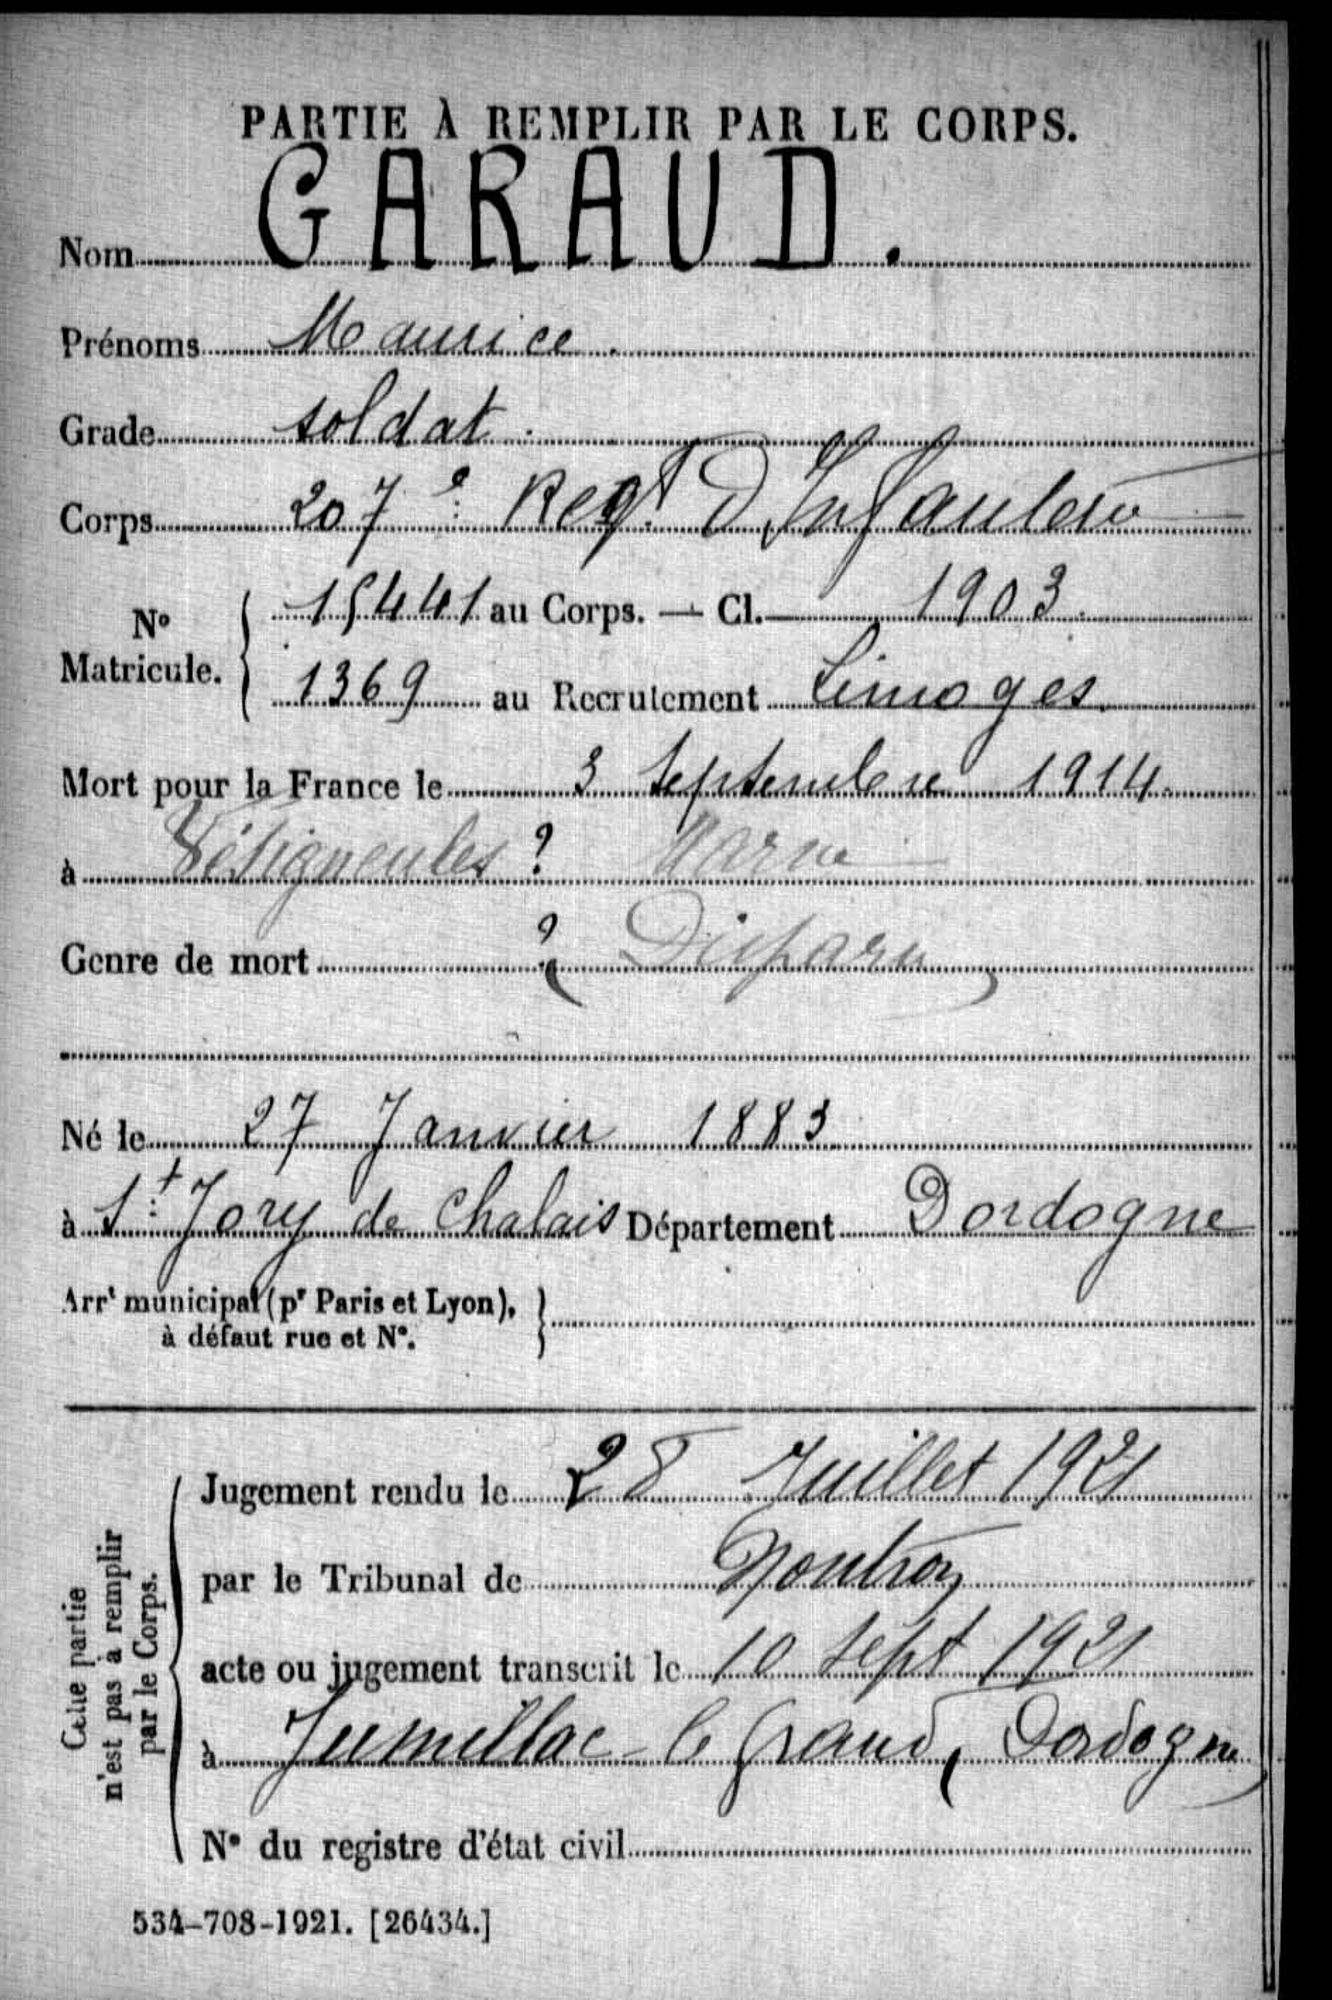 PARTIE À REMPLIR PAR LE CORPS.
Nom GARAUD.
Prénoms Maurice.
Grade soldat.
Corps 207e Regt D'Infanterie
No Matricule. 15441 au Corps. — Cl. 1903.
1369 au Recrutement Limoges.
Mort pour la France le 3 Septembre 1914.
à Vésigneules ? Marne
Genre de mort ? (Disparu)
Né le 27 Janvier 1883
à St Jory de Chalais Département Dordogne
Arrt municipal (pr Paris et Lyon),
à défaut rue et No.
Cette partie
n'est pas à remplir
par le Corps.
Jugement rendu le 28 Juillet 1921
par le Tribunal de Nontron
acte ou jugement transcrit le 10 Sept 1921
à Jumillac-le Grand, (Dordogne)
No du registre d'état civil
534-708-1921. [26434.]